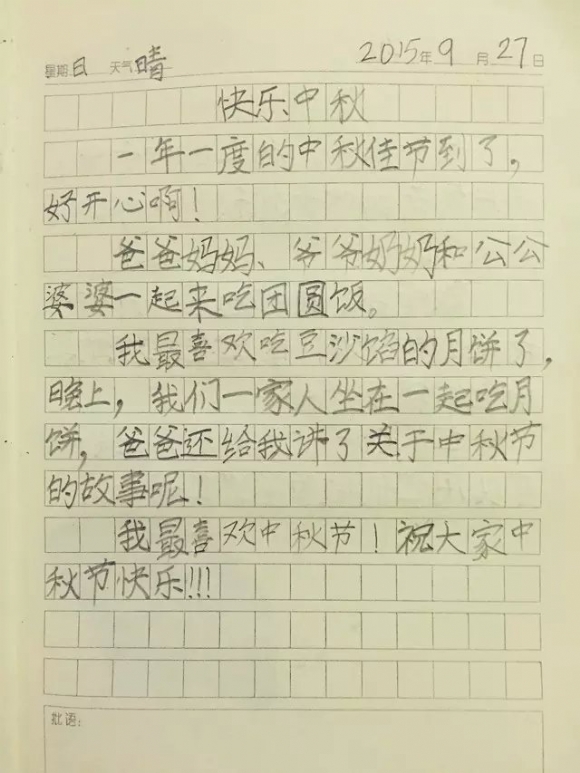 星期日 天气晴 2015年9月27日
快乐中秋
一年一度的中秋佳节到了，
好开心啊！
爸爸妈妈、爷爷奶奶和公公
婆婆一起来吃团圆饭。
我最喜欢吃豆沙馅的月饼了，
晚上，我们一家人坐在一起吃月
饼，爸爸还给我讲了关于中秋节
的故事呢！
我最喜欢中秋节！祝大家中
秋节快乐!!!
批语：